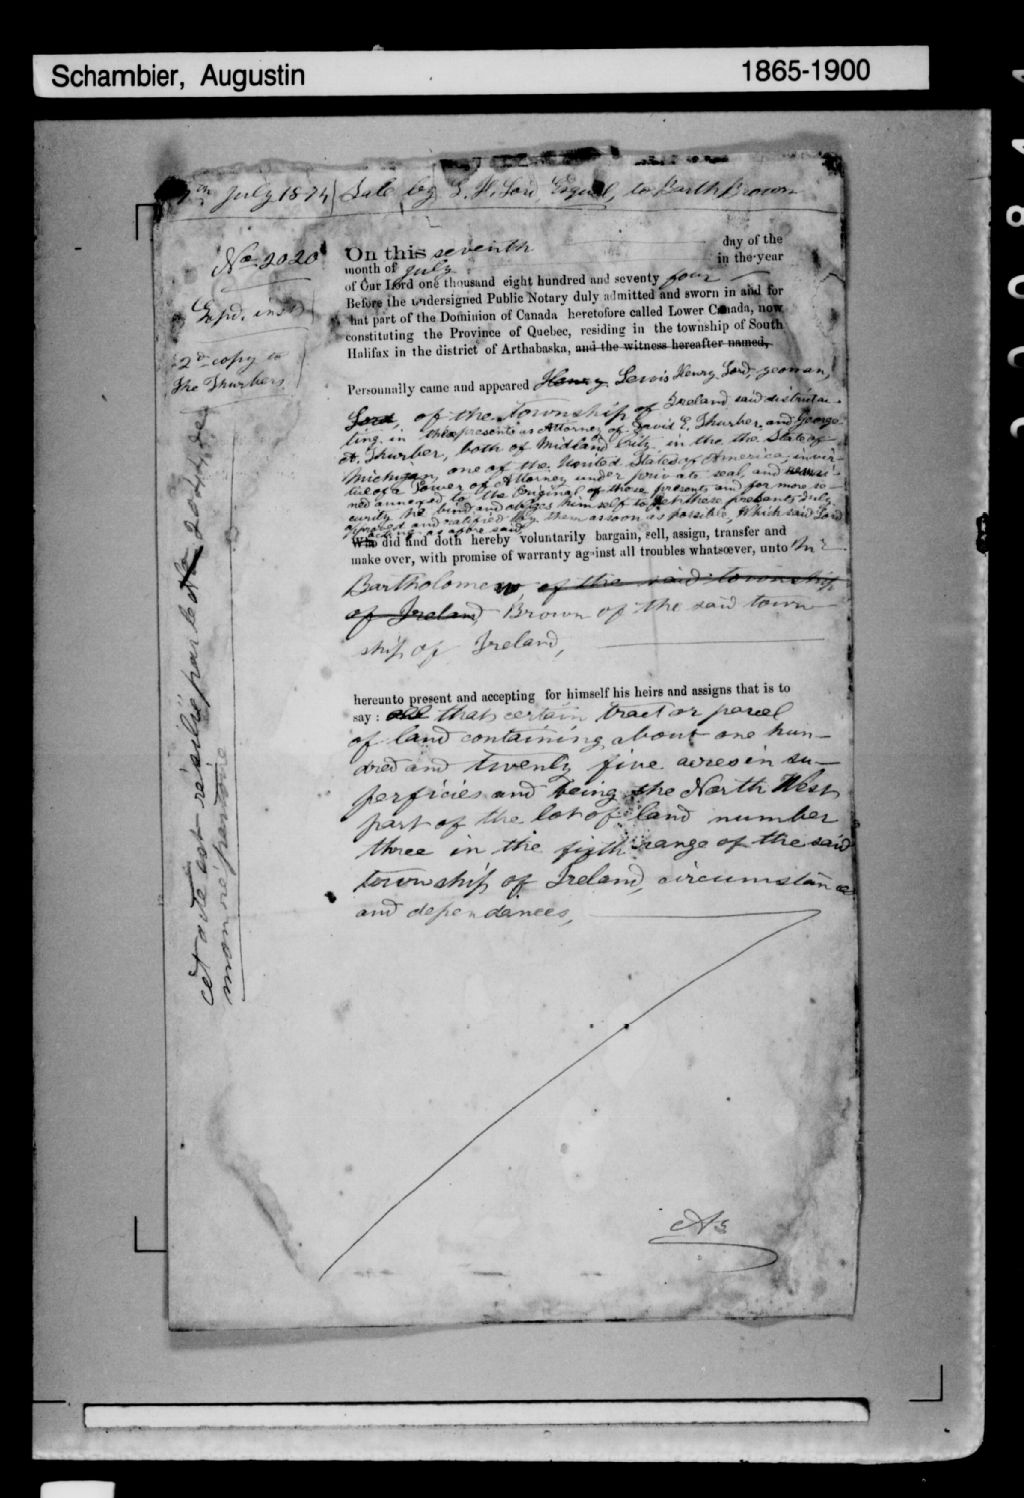 Schambier, Augustin
1865-1900
7th July 1874 Sale by L. H. Lord, Esqual, to Barth Brown
No 2020
Expd. inst
2d copy to
the Thurbers
cet acte est résilié par le No 2044, de
mon répertoire
On this seventh day of the
month of July in the year
of Our Lord one thousand eight hundred and seventy four
Before the undersigned Public Notary duly admitted and sworn in and for
hat part of the Dominion of Canada heretofore called Lower Canada, now
constituting the Province of Quebec, residing in the township of South
Halifax in the district of Arthabaska, and the witness hereafter named,
Personnally came and appeared Henry Lewis Henry Lord, yeoman,
Lord, of the township of Ireland said district ac-
ting in these presents as Attorney of David E. Thurber, and George
A. Thurber, both of Midland City in the the State of
Michigan, one of the United States of America, in vir-
tue of a Power of Attorney under private seal, and
ned annexed to the Original of these presents and for more se-
curity he bind and obliges himself to get these presents duly
approved and ratified by them as soon as possible, Which said Lord
acting as afore said
Who did and doth hereby voluntarily bargain, sell, assign, transfer and
make over, with promise of warranty against all troubles whatsœver, unto Mr
Bartholomew, of the said township
of Ireland Brown of the said town
ship of Ireland,
hereunto present and accepting for himself his heirs and assigns that is to
say : all that certain tract or parcel
of land containing about one hun-
dred and twenty five acres in su-
perficies and being the North West
part of the lot of land number
three in the fifth range of the said
township of Ireland, circumstances
and dependances,
As